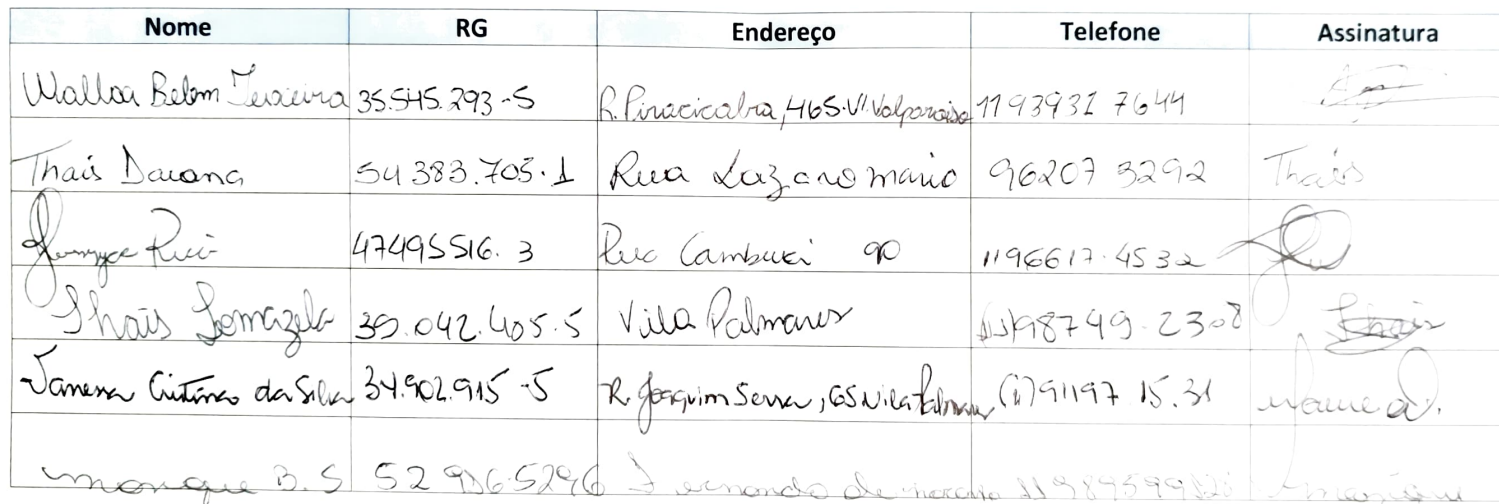 Nome RG Endereço Telefone Assinatura
Walloa Belem Teixeira 35.545.293-5 R. Piracicaba, 465. Vl. Valparaiso 11 93931 7644
Thais Daiana 54 383.703.1 Rua Lazaro mario 96207 3292 Thais
47495516.3 Rua Cambuci 90 1196617.4532
Thais Lomazela 39.042.405.5 Vila Palmares (11)98749.2308 Thais
Vanessa Cristina da Silva 34.902.915-5 R. Joaquim Serra, 65 Vila Palmares (11)91197.15.31
monique B.S 52 936.5296 Fernando de noronha